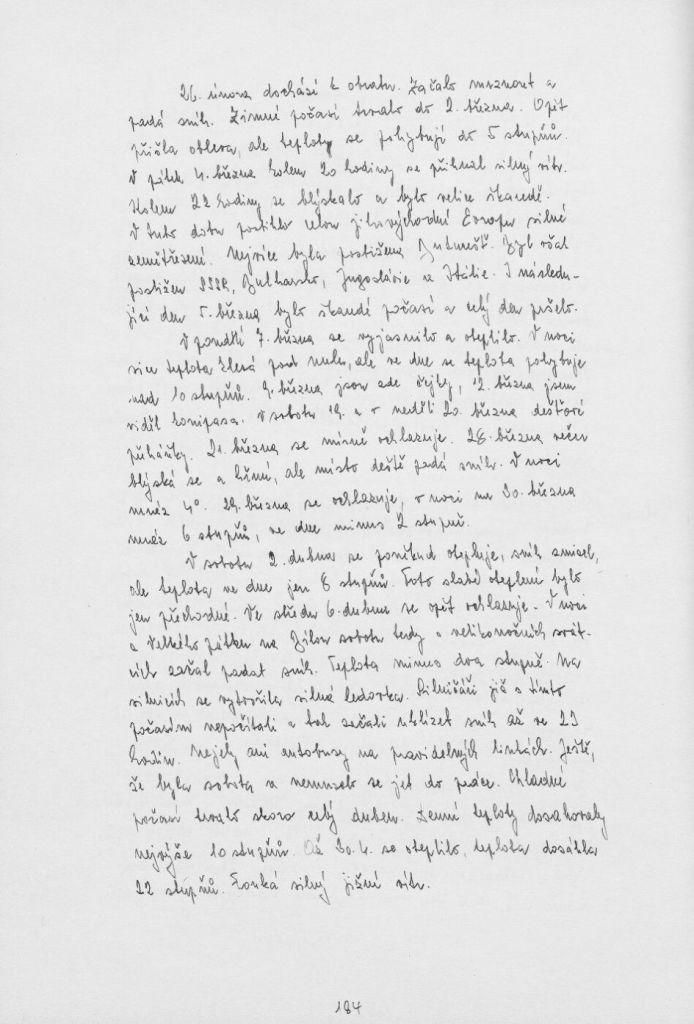 26. února dochází k obratu. Začalo mrznout a
padá sníh. Zimné počasí trvalo do 2. března. Opět
přišla obleva, ale teploty se pohybují do 5 stupňů.
V pátek 4. března kolem 20 hodiny se přihnal silný vítr.
Kolem 22 hodiny se blýskalo a bylo velice škaredě.
V tuto dobu postihlo celou jihovýchodní Evropu silné
zemětřesení. Nejvíce byla postižena Bukurešť. Byl však
postižen SSSR, Bulharsko, Jugoslávie a Itálie. I následu-
jící den 5. března bylo škaredé počasí a celý den pršelo.
V pondělí 7. března se vyjasnilo a oteplilo. V noci
sice teplota klesá pod nulu, ale ve dne se teplota pohybuje
nad 10 stupňů. 9. března jsou zde čejky, 12. března jsem
viděl konipasa. V sobotu 19. a v neděli 20. března dešťové
přeháňky. 21. března se mírně ochlazuje. 28. března večer
blýská se a hřmí, ale místo deště padá sníh. V noci
mráz 4°. 29. března se ochlazuje, v noci na 30. března
mráz 6 stupňů, ve dne minus 2 stupně.
V sobotu 2. dubna se poněkud otepluje, sníh zmizel,
ale teplota ve dne jen 8 stupňů. Toto slabé oteplení bylo
jen přechodné. Ve středu 6. dubna se opět ochlazuje. V noci
z Velkého pátku na Bílou sobotu tedy o velikonočních svát-
cích začal padat sníh. Teplota minus dva stupně. Na
silnicích se vytvořila silná ledovka. Silničáři již s tímto
počasím nepočítali a tak začali uklízet sníh až ve 23
hodin. Nejely ani autobusy na pravidelných linkách. Ještě,
že byla sobota a nemuselo se jet do práce. Chladné
počasí trvalo skoro celý duben. Denní teploty dosahovaly
nejvýše 10 stupňů. Až 30.4. se oteplilo, teplota dosáhla
22 stupňů. Fouká silný jižní vítr.
184